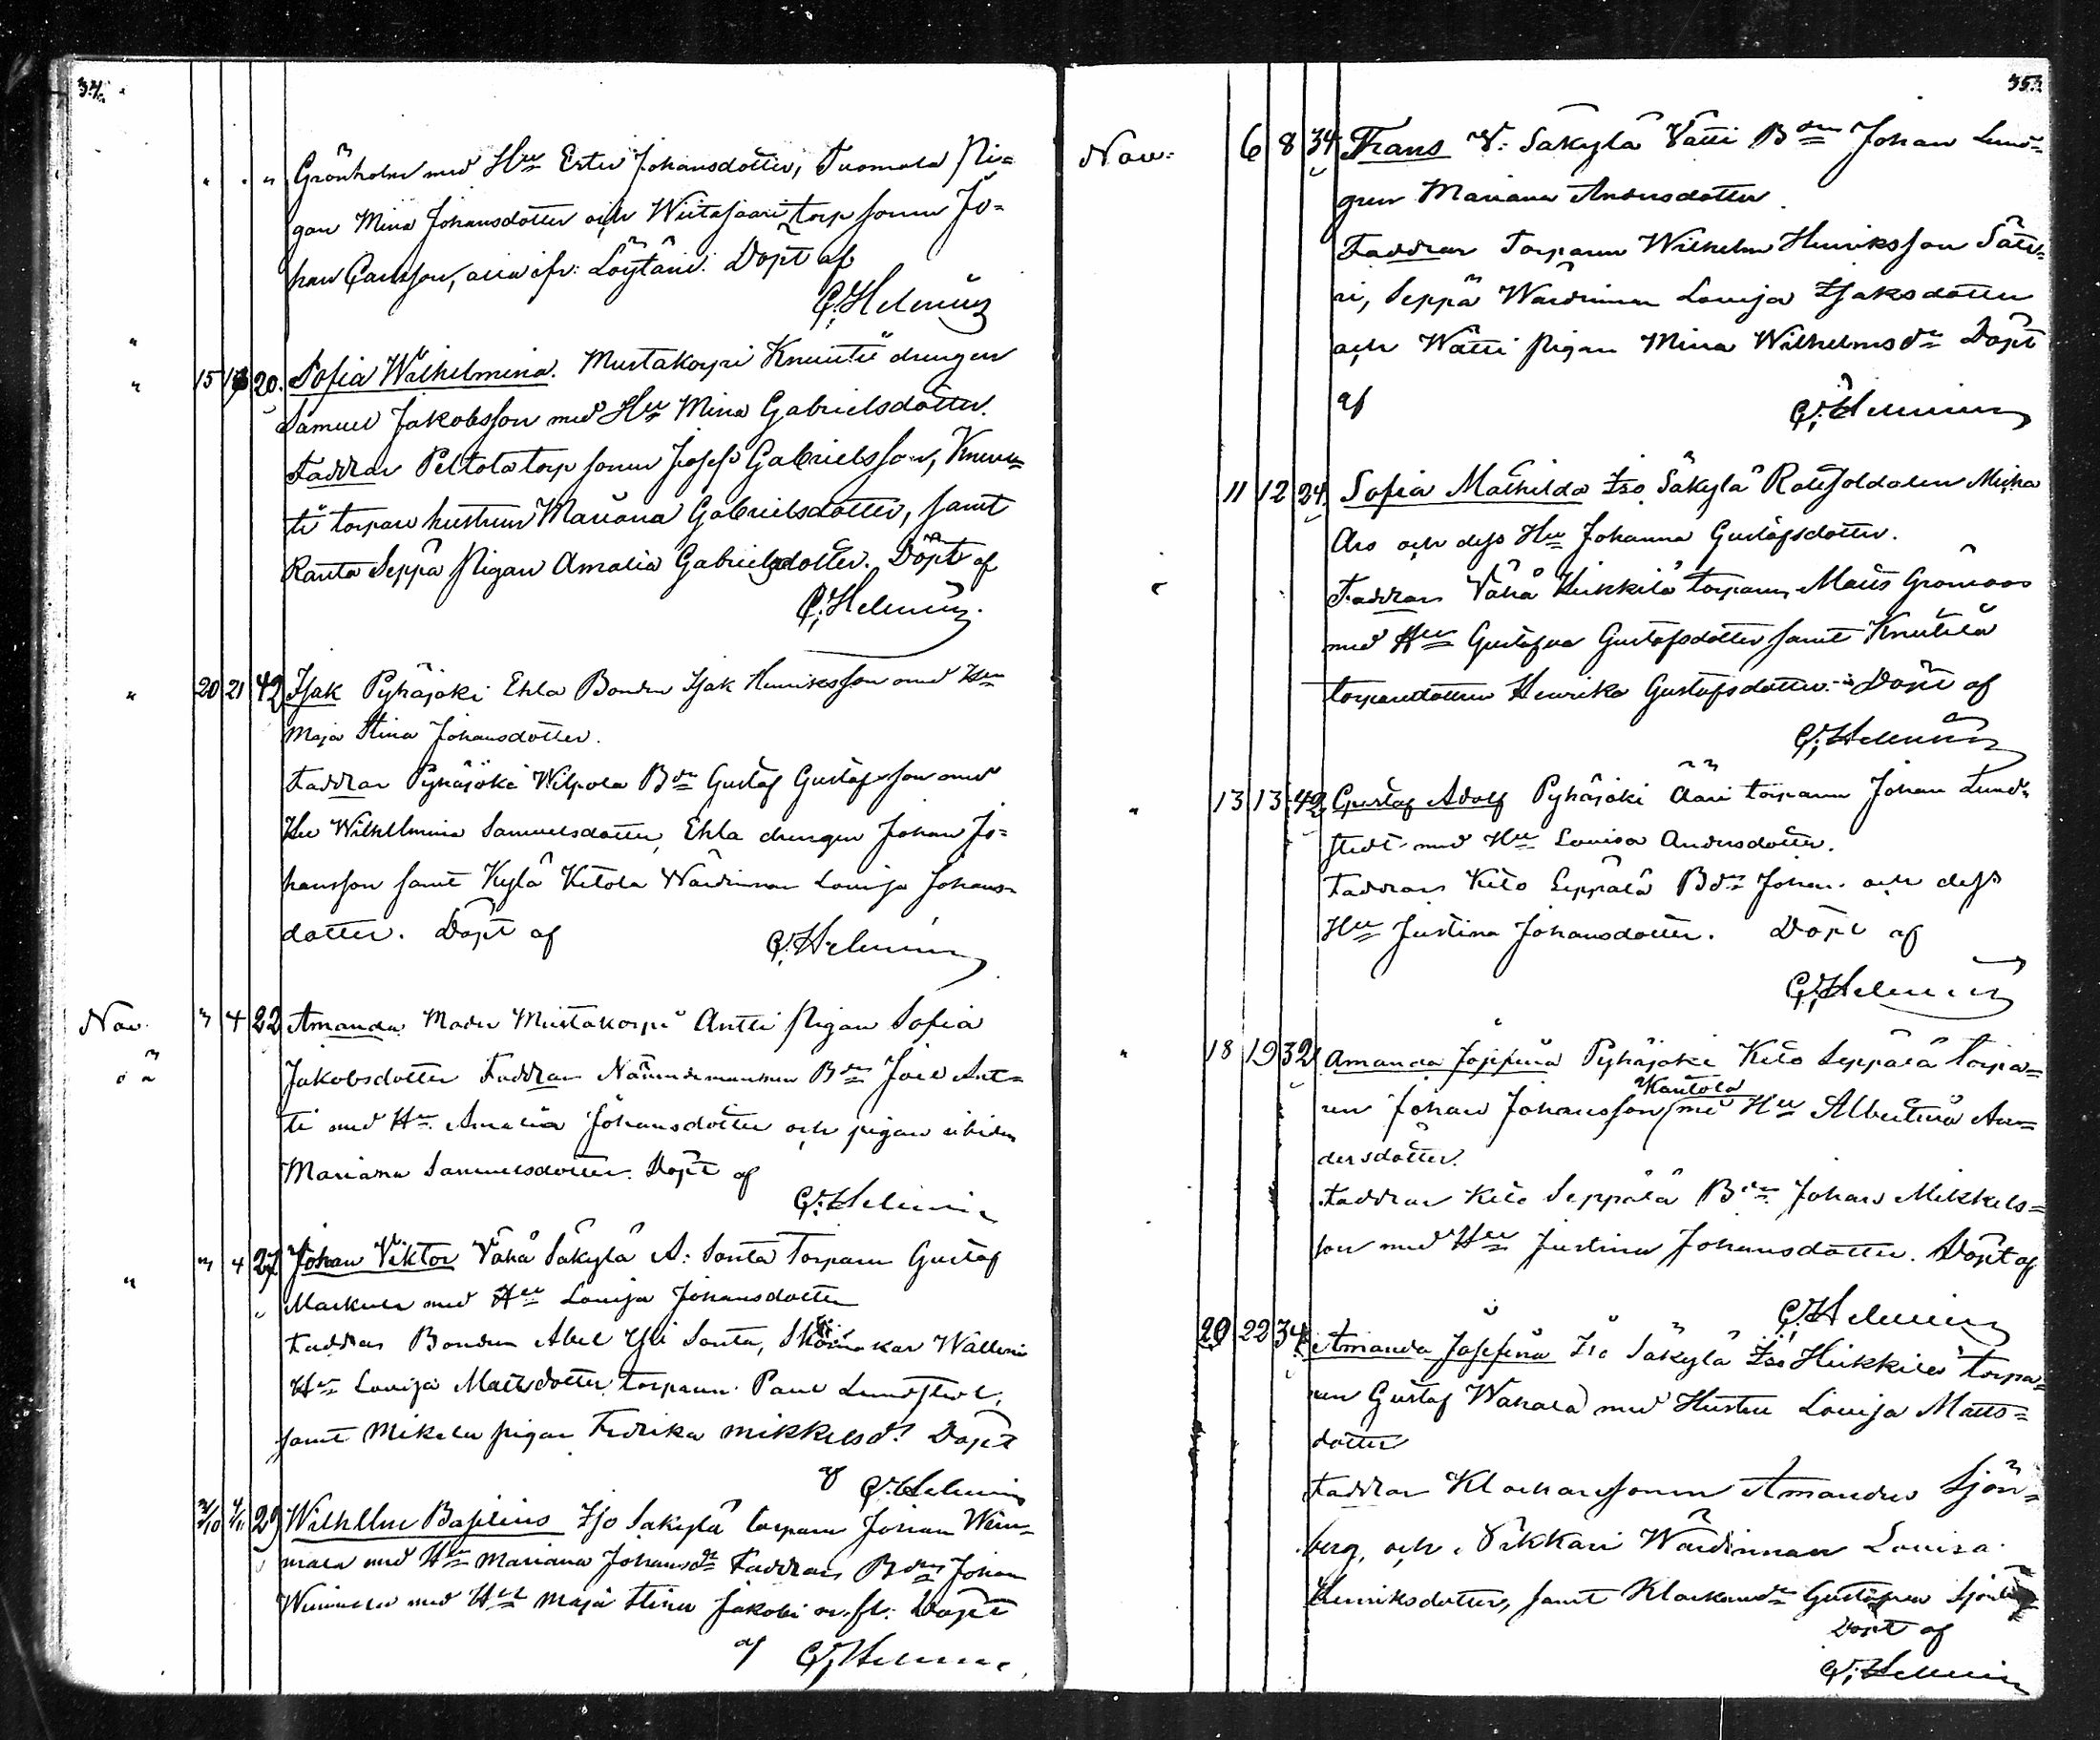 34.
" " " Grönholm med Hu Ester Johansdotter, Tuomola Pi=
gan Mina Johansdotter och Wiitasaari torp sonen Jo=
han Carlsson, Löytäne. Döpt af
C. Helenius
" 15 16 20. Sofia Wilhelmina. Mustakorpi Knuuti drengen
Samuel Jakobsson med Hu Mina Gabrielsdotter.
Faddrar Peltola torp sonen Josef Gabrielsson, Knuu=
ti torpare hustrun Mariana Gabrielsdotter, samt
Ranta Seppä Pigan Amalia Gabrielsdotter. Döpt af
C. Helenius.
" 20 21 42 Isak Pyhäjoki Ehla Bonden Isak Henriksson med Hu
Maja Stina Johansdotter.
Faddrar Pyhäjoki Wilpola Bdn Gustaf Gustafsson med
Hu Wilhelmina Samuelsdotter, Ehla drengen Johan Jo=
hansson samt Kylä Ketola Wärdinnan Lovisa Johans=
dotter. Döpt af C. Helenius
Nov. 3 4 22 Amanda. Moder Mustakorpi Antti Pigan Sofia
Jakobsdotter Faddrar Nämndemannen Bdn Joel Ant=
ti med Hu Amalia Johansdotter och pigan ibidem
Mariana Samuelsdotter. Döpt af
C. Helenius
" 3 4 27 Johan Viktor Vähä Säkylä A: Santa Torparen Gustaf
Markula med Hu Lovisa Johansdotter
Faddrar Bonden Abel Yli Santa, Skomakar Wallenii
Hu Lovisa Mattsdotter, torparen Paul Lundstedt,
samt Mikola pigan Fredrika Mikkelsd: Döpt
af C. Helenius
3/10 4/11 29 Wilhelm Basilius Iso Säkylä torparen Johan Wii=
mala med Hu Mariana Johansdr Faddrar Bdn Johan
med Hu Maja Stina Jakobi Döpt
af C. Helenius
35.
Nov: 6 8 34 Frans V: Säkylä Vätti Bdn Johan Lund=
gren Mariana Andersdotter
Faddrar Torparen Wilhelm Henriksson Säte=
ri, Seppä Wärdinnan Lovisa Isaksdotter
och Wätti Pigan Mina Wilhelmsdr Döpt
af C. Helenius
" 11 12 24 Sofia Mathilda Iso Säkylä Rotesoldaten Micha
Aro och dess Hu Johanna Gustafsdotter.
Faddrar Vähä Heikkilä torparen Matts Granroos
med Hu Gustafva Gustafsdotter samt Knutila
torparedottren Henrika Gustafsdotter. Döpt af
C. Helenius
" 13 13 42 Gustaf Adolf Pyhäjoki Aari torparen Johan Lund=
stedt med Hu Lovisa Andersdotter.
Faddrar Keto Seppälä Bdn Johan och dess
Hu Justina Johansdotter. Döpt af
C. Helenius
" 18 19 32 Amanda Josefina Pyhäjoki Keto Seppälä torpa=
ren Johan Johansson Kantola med Hu Albertina An=
dersdotter.
Faddrar Keto Seppälä Bdn Johan Mikkels=
son med Hu Justina Johansdotter. Döpt af
C. Helenius
20 22 34 Amanda Josefina Iso Säkylä Iso Heikkilä torpa=
ren Gustaf Wahala med Hustru Lovisa Matts=
dotter
Faddrar Klockarsonen Amandus Sjön=
berg, och Pikkari Wärdinnan Lovisa
Henriksdotter, samt Klockaredr Gustafva
Döpt af
C. Helenius